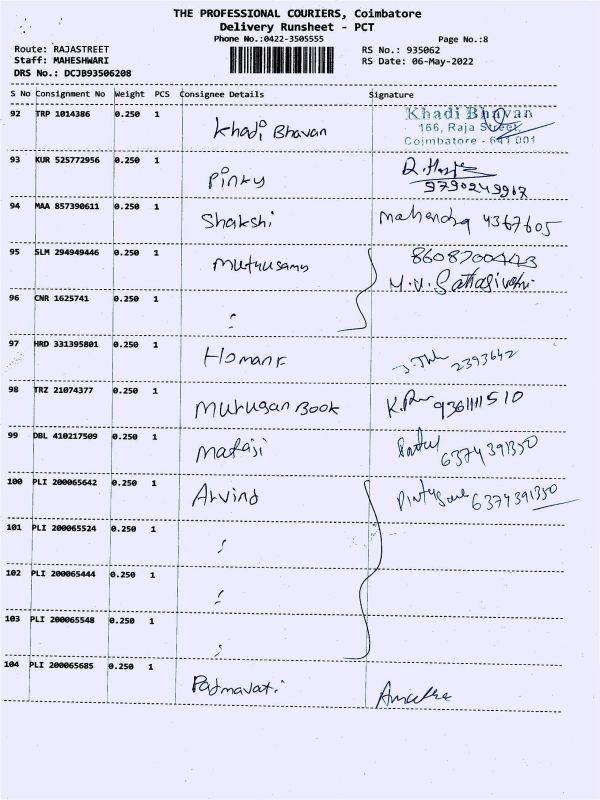 THE PROFESSIONAL COURIERS, Coimbatore
Delivery Runsheet - PCT
Phone No.:0422-3505555
Page No.:8
Route: RAJASTREET
RS No.: 935062
Staff: MAHESHWARI
RS Date: 06-May-2022
DRS No.: DCJB93506208
S No Consignment No Weight PCS Consignee Details Signature
92 TRP 1014386 0.250 1 Khadi Bhavan
Khadi Bhavan
166, Raja Street,
Coimbatore - 641 001
93 KUR 525772956 0.250 1 Pinky
9790249967
94 MAA 857390611 0.250 1 Shakshi Mahendra 4367605
95 SLM 294949446 0.250 1 Mutusamy 8608700443
96 CNR 1625741 0.250 1 "
97 HRD 331395801 0.250 1 2393642
98 TRZ 21074377 0.250 1 Murugan Book 9361111510
99 DBL 410217509 0.250 1 Mataji 6374391350
100 PLI 200065642 0.250 1 Arvind 6374391350
101 PLI 200065524 0.250 1 "
102 PLI 200065444 0.250 1 "
103 PLI 200065548 0.250 1 "
104 PLI 200065685 0.250 1 Padmavati